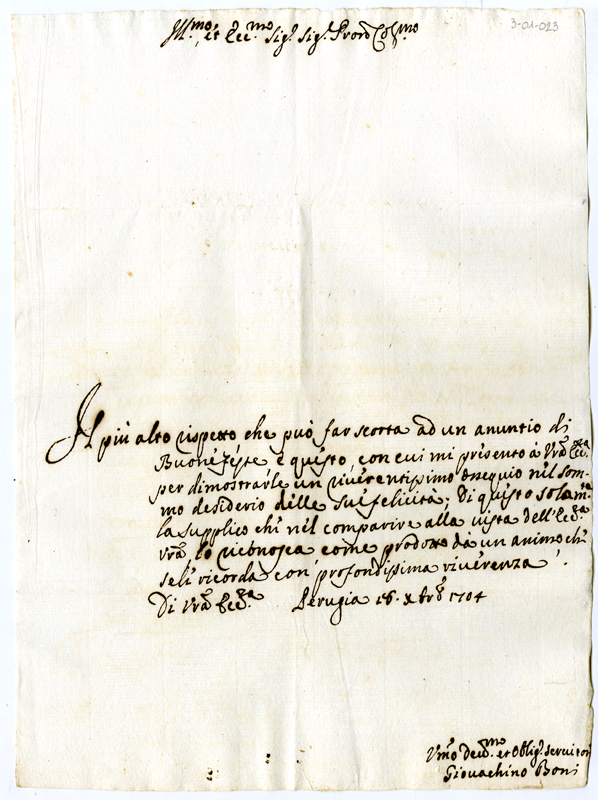 3-01-023
Ill.mo et Ecc.mo Sig.r Sig.r Pron Col.mo
Il più alto rispetto che può far scorta ad un anuntio di
Buone feste è questo, con cui mi presento à Vrã Ecc.za
per dimostrarle un riverentissimo ossequio nel som-
mo desiderio delle sue felicità; Di questo solam.te
la supplico che nel comparire alla vista dell'Ecc.za
Vrã lo riconosca come prodotto da un animo che
se li ricorda con profondissima riverenza.
Di Vrã Ecc.za Perugia 16. Xbre 1704
Vmo Dev.mo et Oblig. servitor
Giovachino Boni